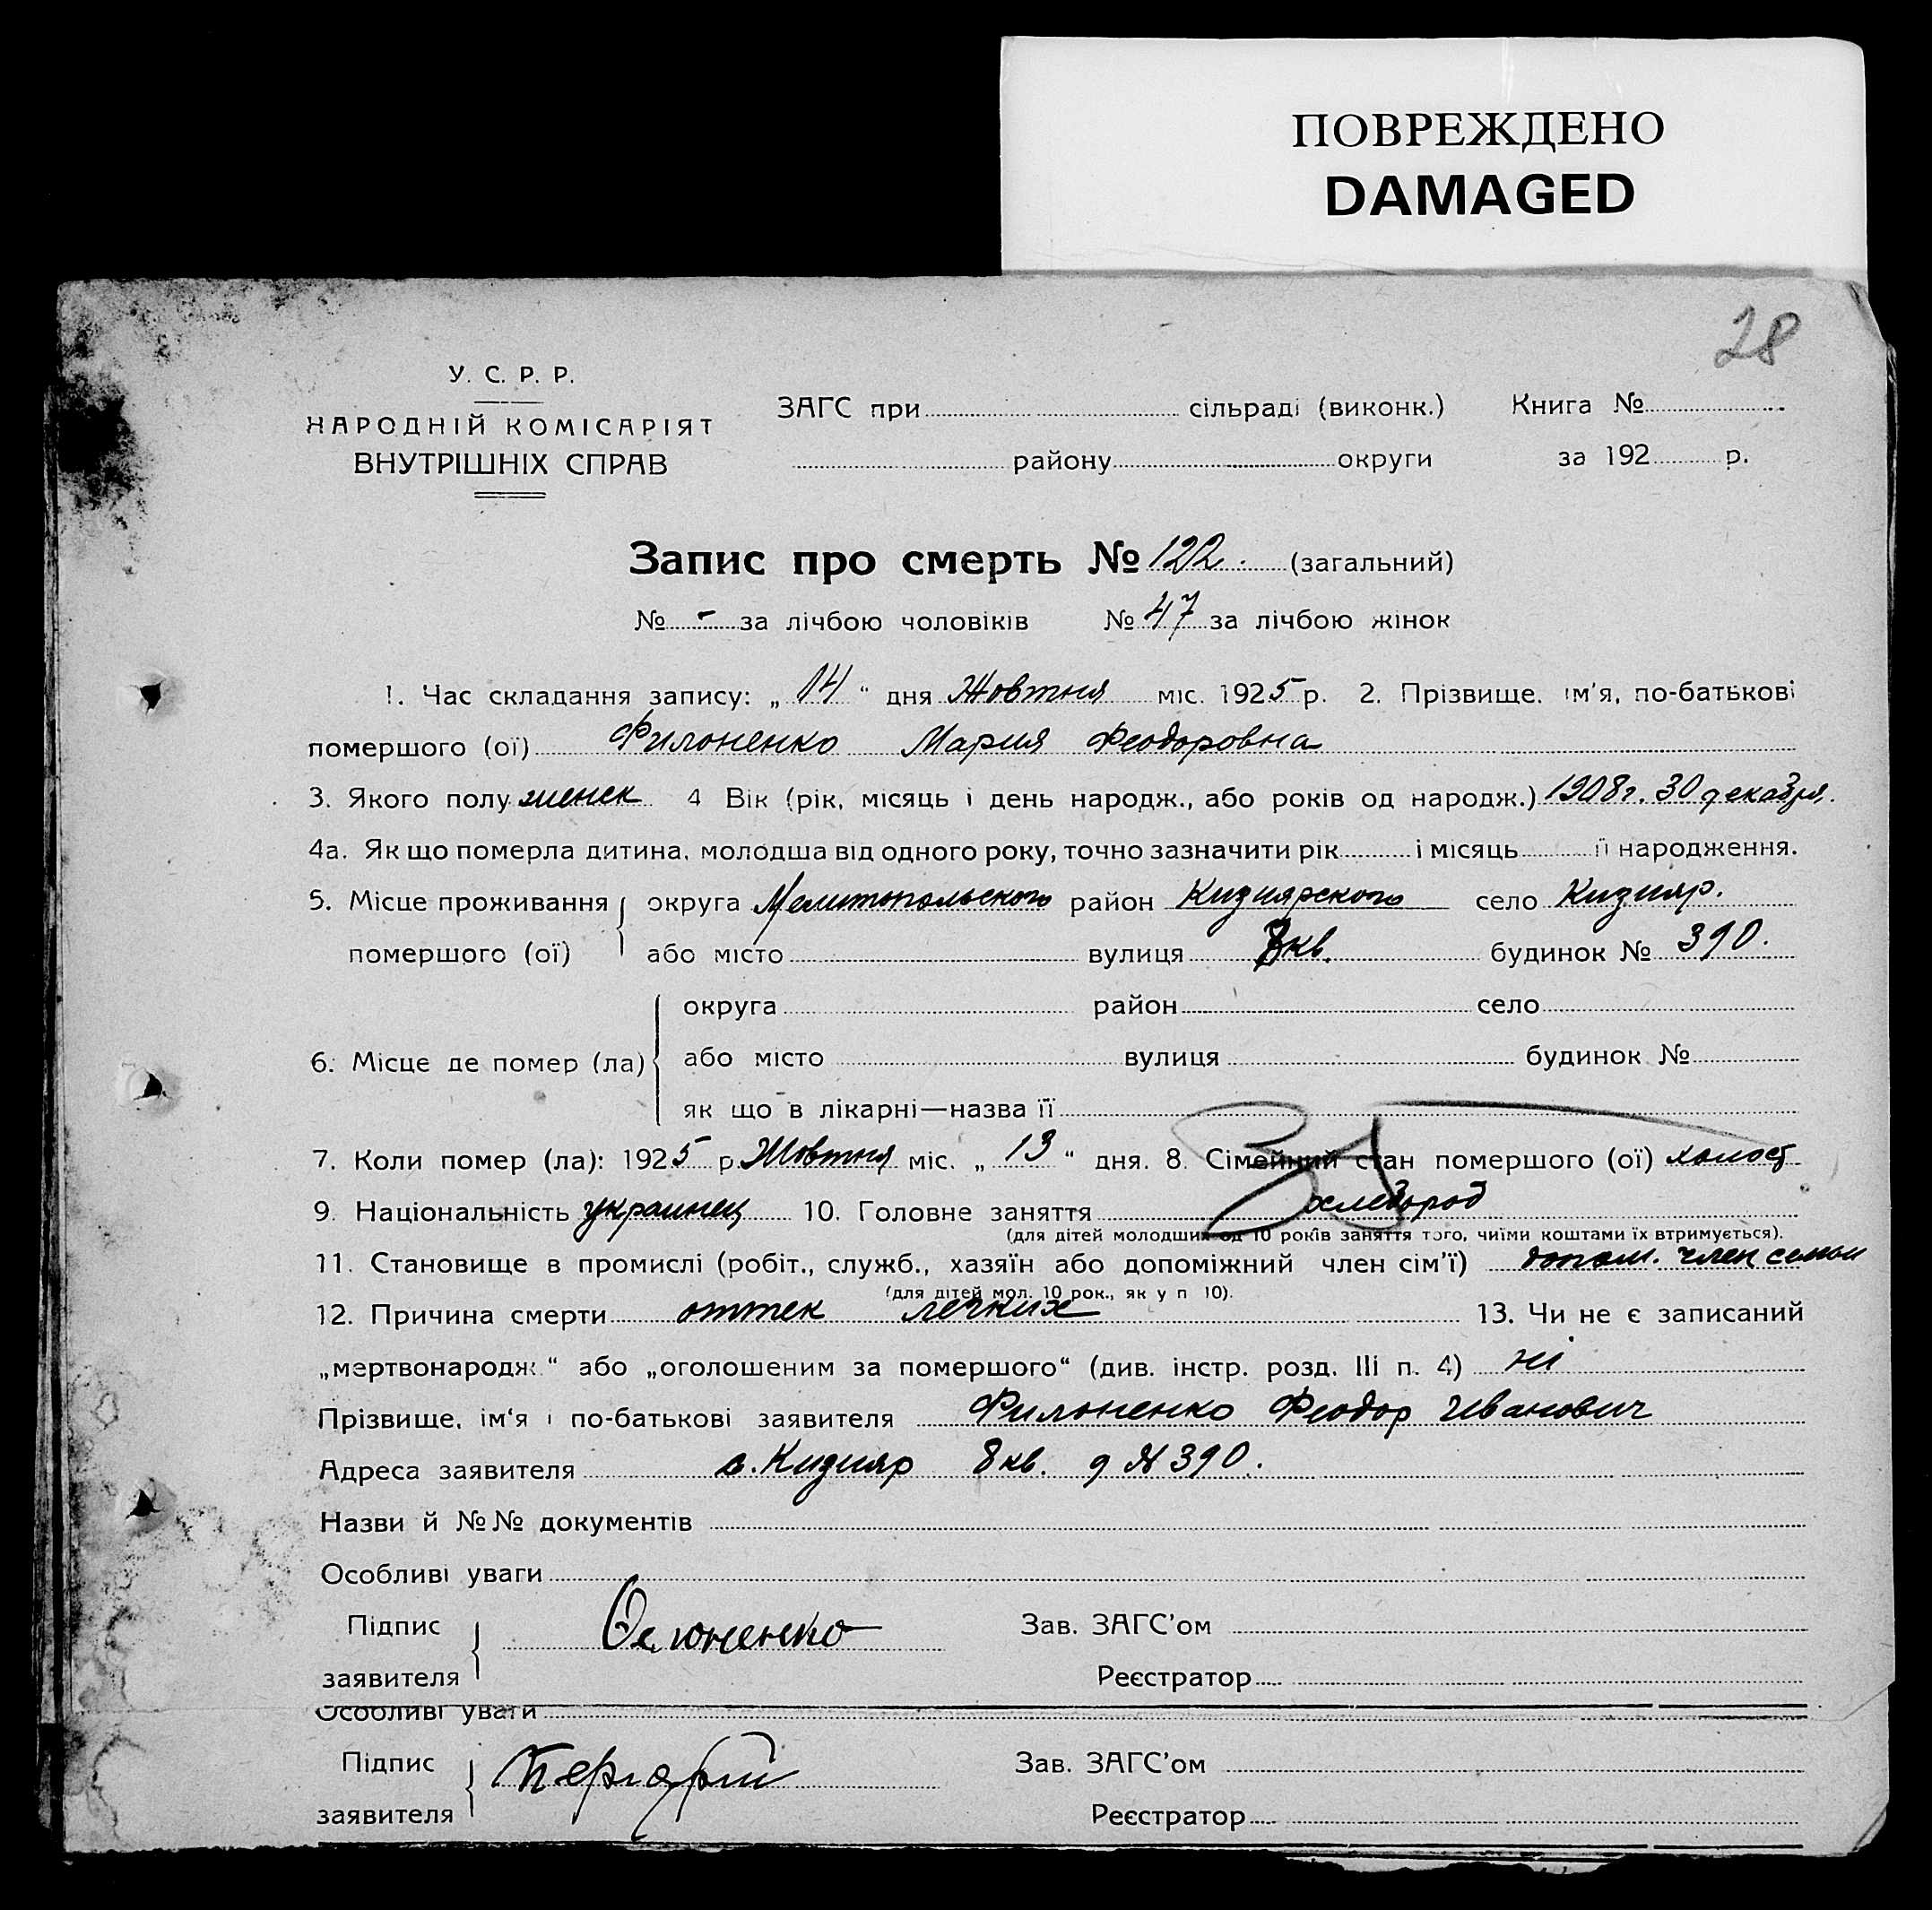 ПОВРЕЖДЕНО
DAMAGED
28
У. С. Р. Р.
НАРОДНІЙ КОМІСАРІЯТ
ВНУТРІШНІХ СПРАВ
ЗАГС при сільраді (виконк.) Книга №
району округи за 192 р.
Запис про смерть № 122. (загальний)
№ - за лічбою чоловіків № 47 за лічбою жінок
1. Час складання запису: „14“ дня Жовтня міс. 1925 р. 2. Прізвище, ім'я, по-батькові
помершого (ої) Филоненко Мария Феодоровна
3. Якого полу женск 4 Вік (рік, місяць і день народж., або років од народж.) 1908 г. 30 декабря.
4а. Як що померла дитина, молодша від одного року, точно зазначити рік і місяць її народження.
5. Місце проживання округа Мелитопольского район Кизиярского село Кизияр.
помершого (ої) або місто вулиця 8 кв. будинок № 390.
округа район село
6. Місце де помер (ла) або місто вулиця будинок №
як що в лікарні—назва її
7. Коли помер (ла): 1925 р. Жовтня міс. „13“ дня. 8. Сімейний стан помершого (ої) холост
9. Національність украинец 10. Головне заняття хлебород
(для дітей молодших од 10 років заняття того, чиїми коштами їх втримується).
11. Становище в промислі (робіт., служб., хазяїн або допоміжний член сім'ї) допом. член семьи
(для дітей мол. 10 рок., як у п 10).
12. Причина смерти оттек легких 13. Чи не є записаний
„мертвонародж.“ або „оголошеним за помершого“ (див. інстр. розд. III п. 4) ні
Прізвище, ім'я і по-батькові заявителя Филоненко Феодор Иванович
Адреса заявителя с. Кизияр 8 кв. д № 390.
Назви й №№ документів
Особливі уваги
Підпис Филоненко Зав. ЗАГС'ом
заявителя Реєстратор
Особливі уваги
Підпис Зав. ЗАГС'ом
заявителя Реєстратор